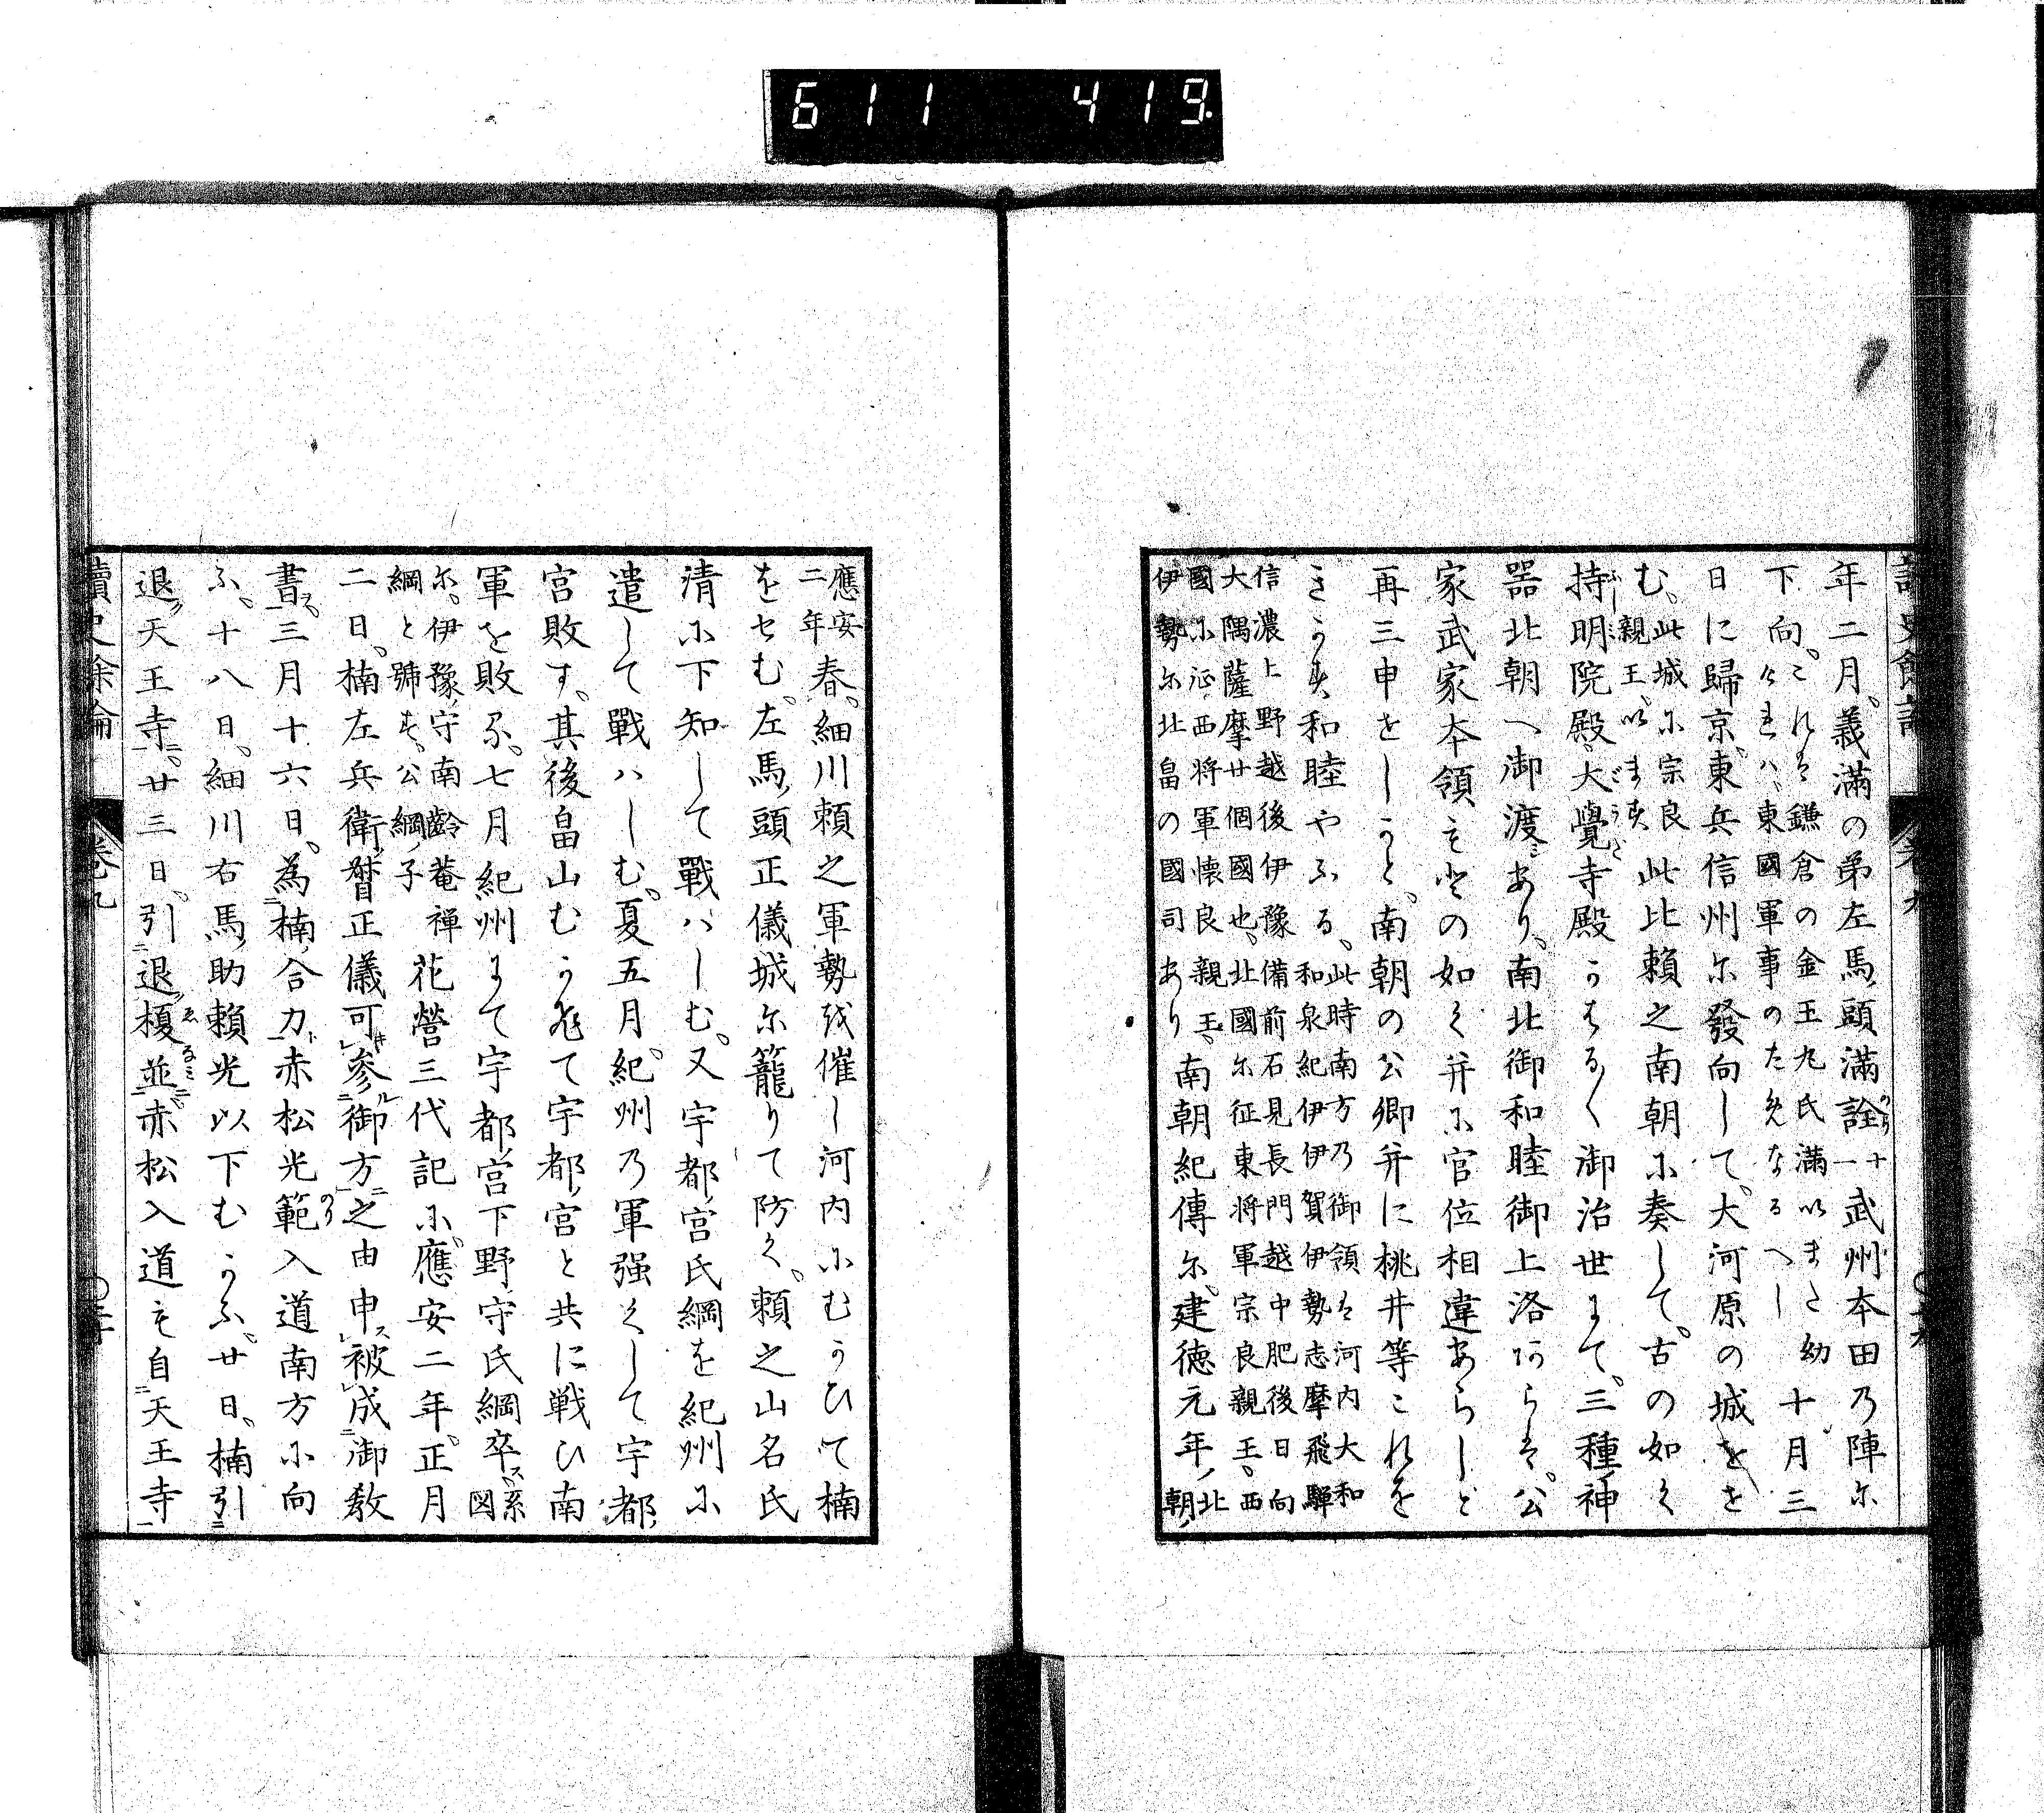 611 419.
年二月、義滿の弟左馬頭滿詮十一武州本田乃陣尓
下向、これは鎌倉の金王丸氏滿いまた幼
けれハ、東國軍事のためなるへし十月三
日に歸京、東兵信州尓發向して、大河原の城をを
む、此城尓宗良
親王います此比賴之南朝尓奏して、古の如く
持明院殿、大覺寺殿かはる〱御治世にて、三種神
器北朝へ御渡あり、南北御和睦御上洛あらは、公
家武家本領もとの如く并尓官位相違あらしと
再三申をしかと、南朝の公卿并に桃井等これを
きかす和睦やふる、此時南方乃御領は河内大和
和泉紀伊伊賀伊勢志摩飛驒
信濃上野越後伊豫備前石見長門越中肥後日向
大隅薩摩廿個國也、北國尓征東将軍宗良親王、西
國尓征西将軍懷良親王、
伊勢尓北畠の國司あり南朝紀傳尓、建德元年、北
朝
應安
二年春、細川賴之軍勢越催し河内尓むかひて楠
をせむ、左馬頭正儀城尓籠りて防く、賴之山名氏
清尓下知して戰ハしむ、又宇都宮氏綱を紀州尓
遣して戰ハしむ、夏五月、紀州乃軍强くして宇都
宮敗す、其後畠山むかひて宇都宮と共に戦ひ南
軍を敗る、七月紀州にて宇都宮下野守氏綱卒ス、系
図
尓、伊豫守南齡菴禅
綱と號す、公綱子花營三代記尓、應安二年、正月
二日、楠左兵衛督正儀可參御方之由申被成御教
書、三月十六日、為楠合力赤松光範入道南方尓向
ふ、十八日、細川右馬助賴光以下むかふ、廿日、楠引
退天王寺、廿三日、引退榎並、赤松入道も自天王寺
讀史余論 卷九